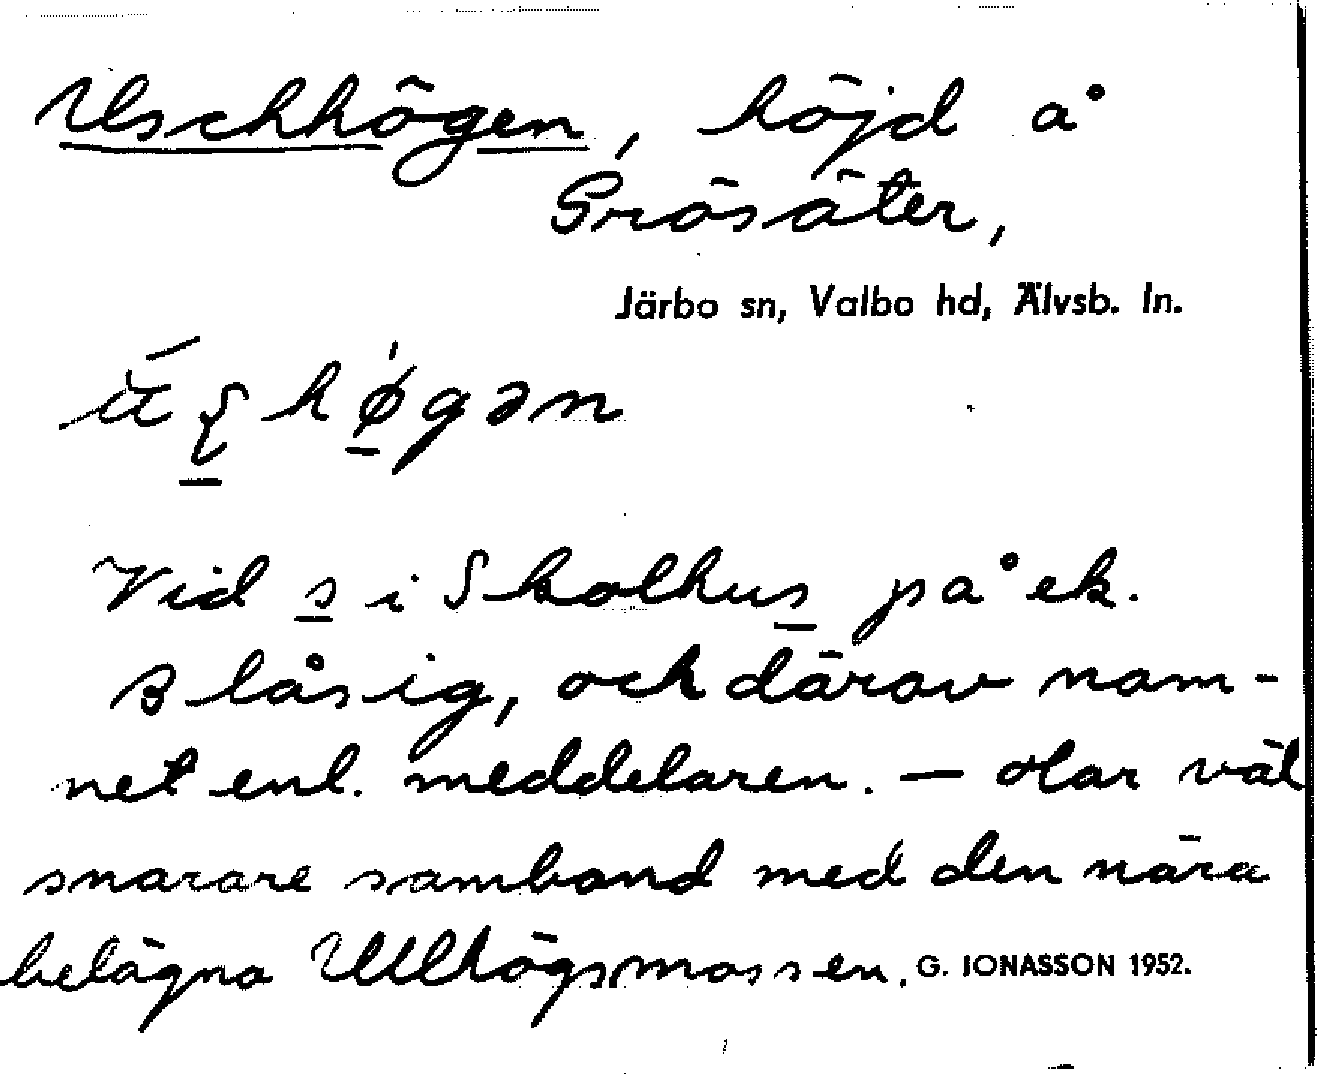 Uschhögen, höjd å
Grösäter,
Järbo sn, Valbo hd, Älvsb. ln.
högən
Vid s i Skolhus på ek.
Blåsig, och därav nam-
net enl. meddelaren. — Har väl
snarare samband med den nära
belägna Ullhögsmossen. G. JONASSON 1952.